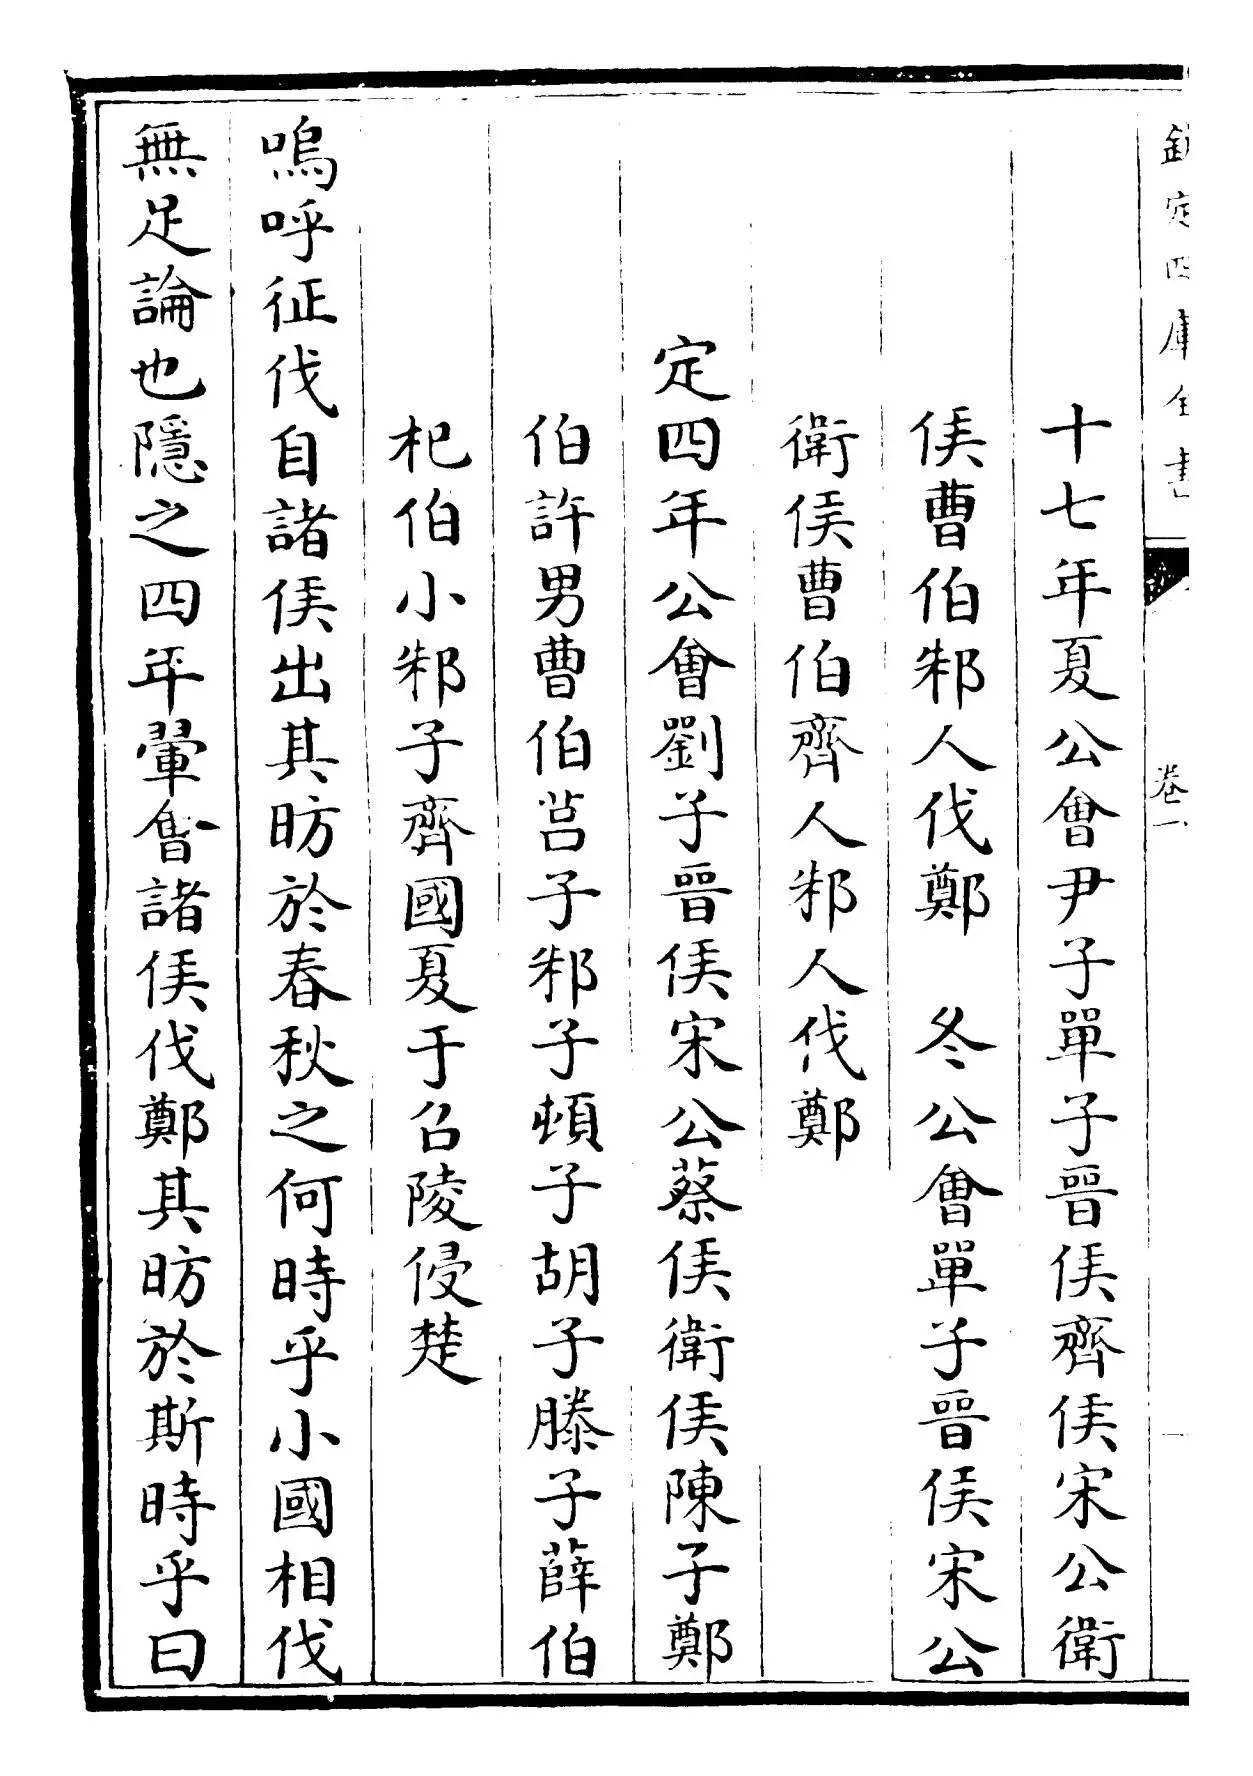 欽定四庫全書
卷一
十七年夏公會尹子單子晉侯齊侯宋公衛
侯曹伯邾人伐鄭　冬公會單子晉侯宋公
衛侯曹伯齊人邾人伐鄭
定四年公會劉子晉侯宋公蔡侯衛侯陳子鄭
伯許男曹伯莒子邾子頓子胡子滕子薛伯
杞伯小邾子齊國夏于召陵侵楚
嗚呼征伐自諸侯出其昉於春秋之何時乎小國相伐
無足論也隱之四年翬會諸侯伐鄭其昉於斯時乎曰